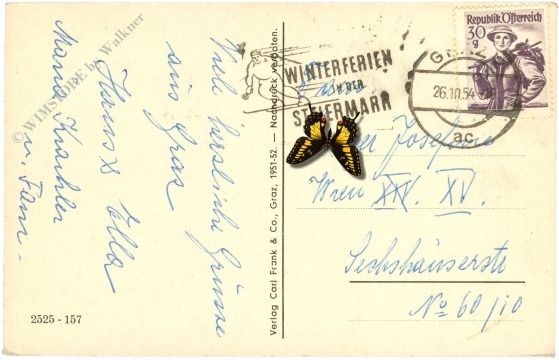 Viele herzliche Grüsse
aus Graz
Hans & Ella
Maria
u. Fam.
2525 - 157
Verlag Carl Frank & Co., Graz, 1951-52. — Nachdruck verboten.
© WIMSTORE by Walkner
WINTERFERIEN
IN DER
STEIERMARK
Republik Österreich
30
g
26.10.54
ac
Fam.
Josefine
Wien XIV. XV.
Sechshauserstr
No 60/10